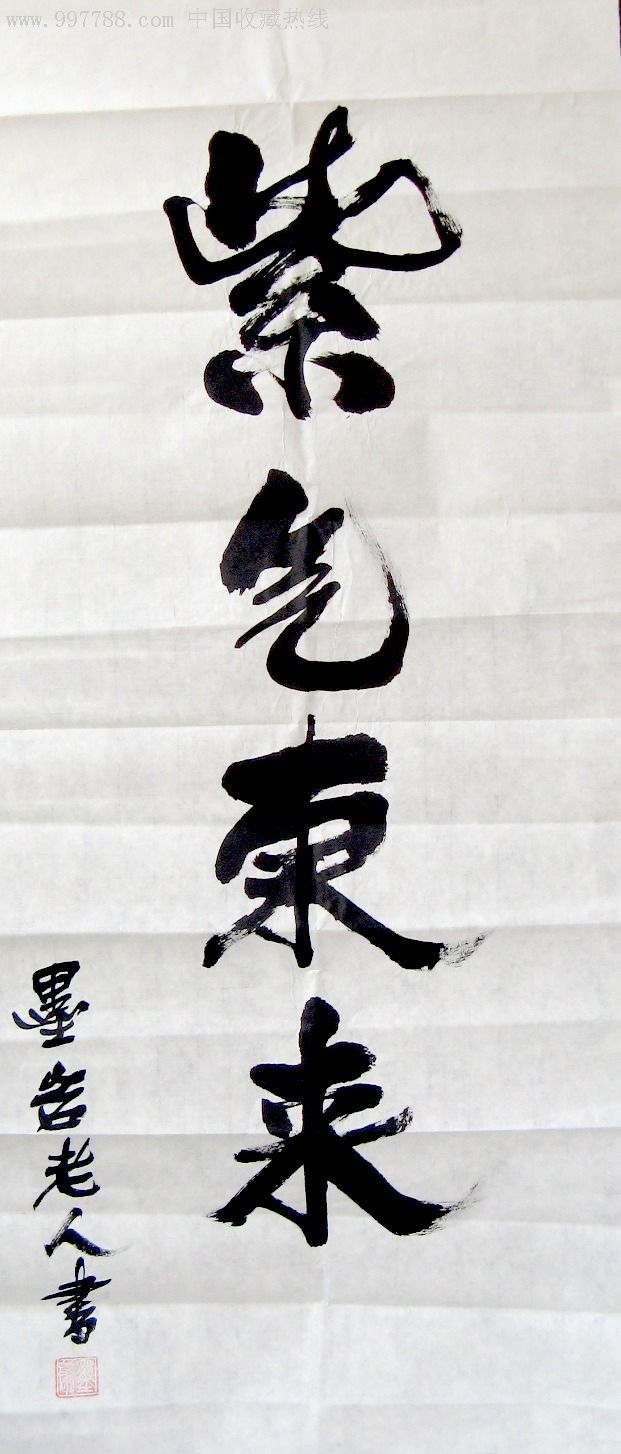 www.997788.com 中国收藏热线
紫气东来
墨岩老人书